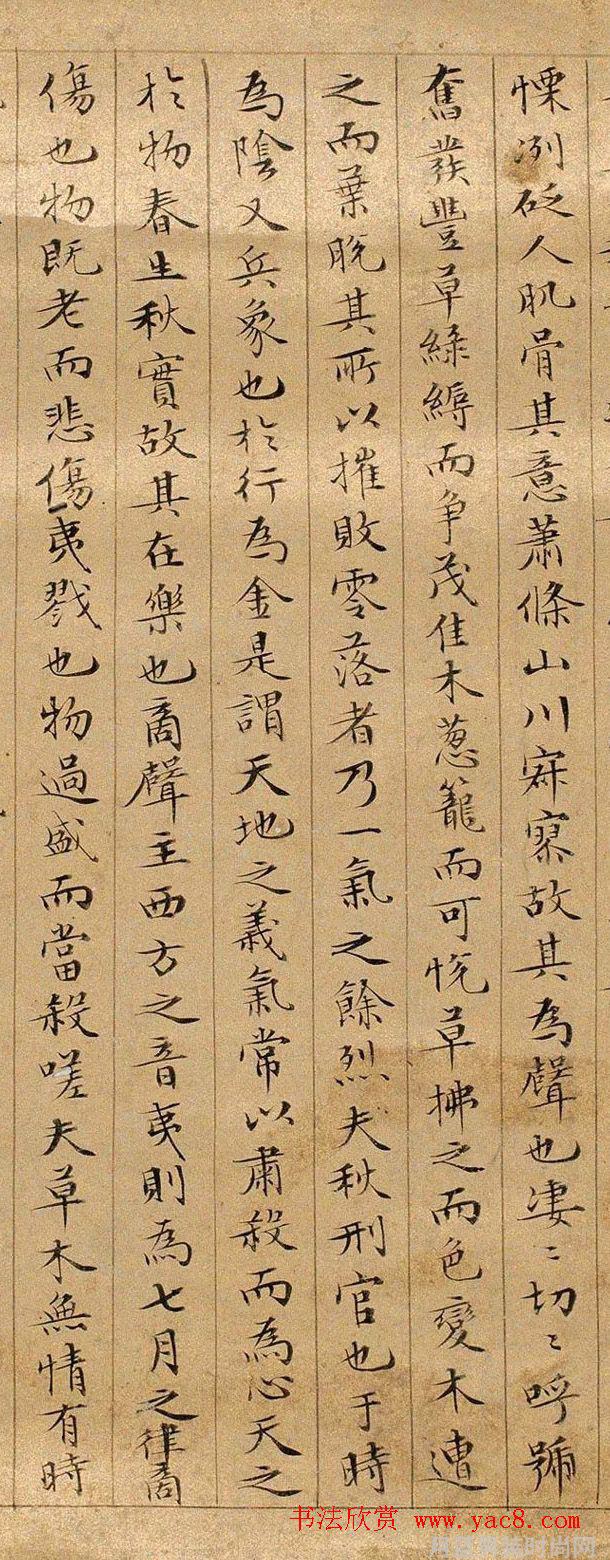 慄冽砭人肌骨其意蕭條山川寂寥故其為聲也凄〻切〻呼號
奮發豐草綠縟而争茂佳木葱籠而可悅草拂之而色變木遭
之而葉脫其所以摧敗零落者乃一氣之餘烈夫秋刑官也于時
為陰又兵象也於行為金是謂天地之義氣常以肅殺而為心天之
於物春生秋實故其在樂也商聲主西方之音夷則為七月之律商
傷也物既老而悲傷夷戮也物過盛而當殺嗟夫草木無情有時
书法欣赏 www.yac8.com
时尚网